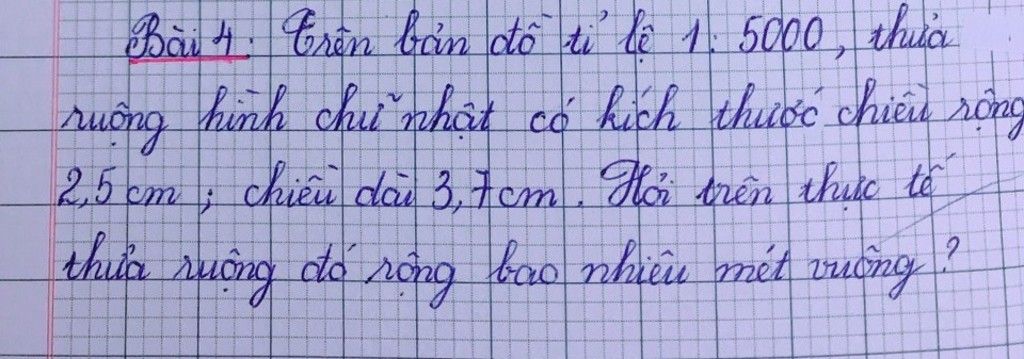 Bài 4. Trên bản đồ tỉ lệ 1: 5000, thửa
ruộng hình chữ nhật có kích thước chiều rộng
2,5 cm; chiều dài 3,7cm. Hỏi trên thực tế
thửa ruộng đó rộng bao nhiêu mét vuông?